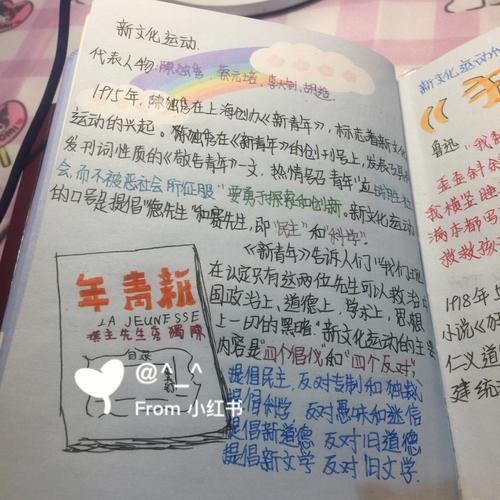 新文化运动.
代表人物:陈独秀、蔡元培、李大钊、胡适.
1915年,陈独秀在上海创办《新青年》,标志着新文化
运动的兴起。陈独秀在《新青年》的创刊号上,发表了具有
发刊词性质的《敬告青年》一文,热情号召青年"起
会,而不被恶社会所征服"要勇于探索和创新。新文化运动
的口号是提倡"德先生"和赛先生,即"民主"和"科学".
《新青年》告诉人们"我们现
在认定只有这两位先生可以救治
国政治上、道德上、学术上、思想
上一切的黑暗"新文化运动的主要
内容是"四个提倡"和"四个反对"
提倡民主,反对专制和独裁
提倡科学,反对愚昧和迷信
提倡新道德 反对旧道德
提倡新文学 反对旧文学.
年青新
LA JEUNESSE
撰主生先秀獨陳
目录
@^_^
From 小红书
新文化运动
鲁迅 "我
歪歪斜斜
我横竖睡
满本都写
救救孩
1918年5
小说《
仁义道
建统